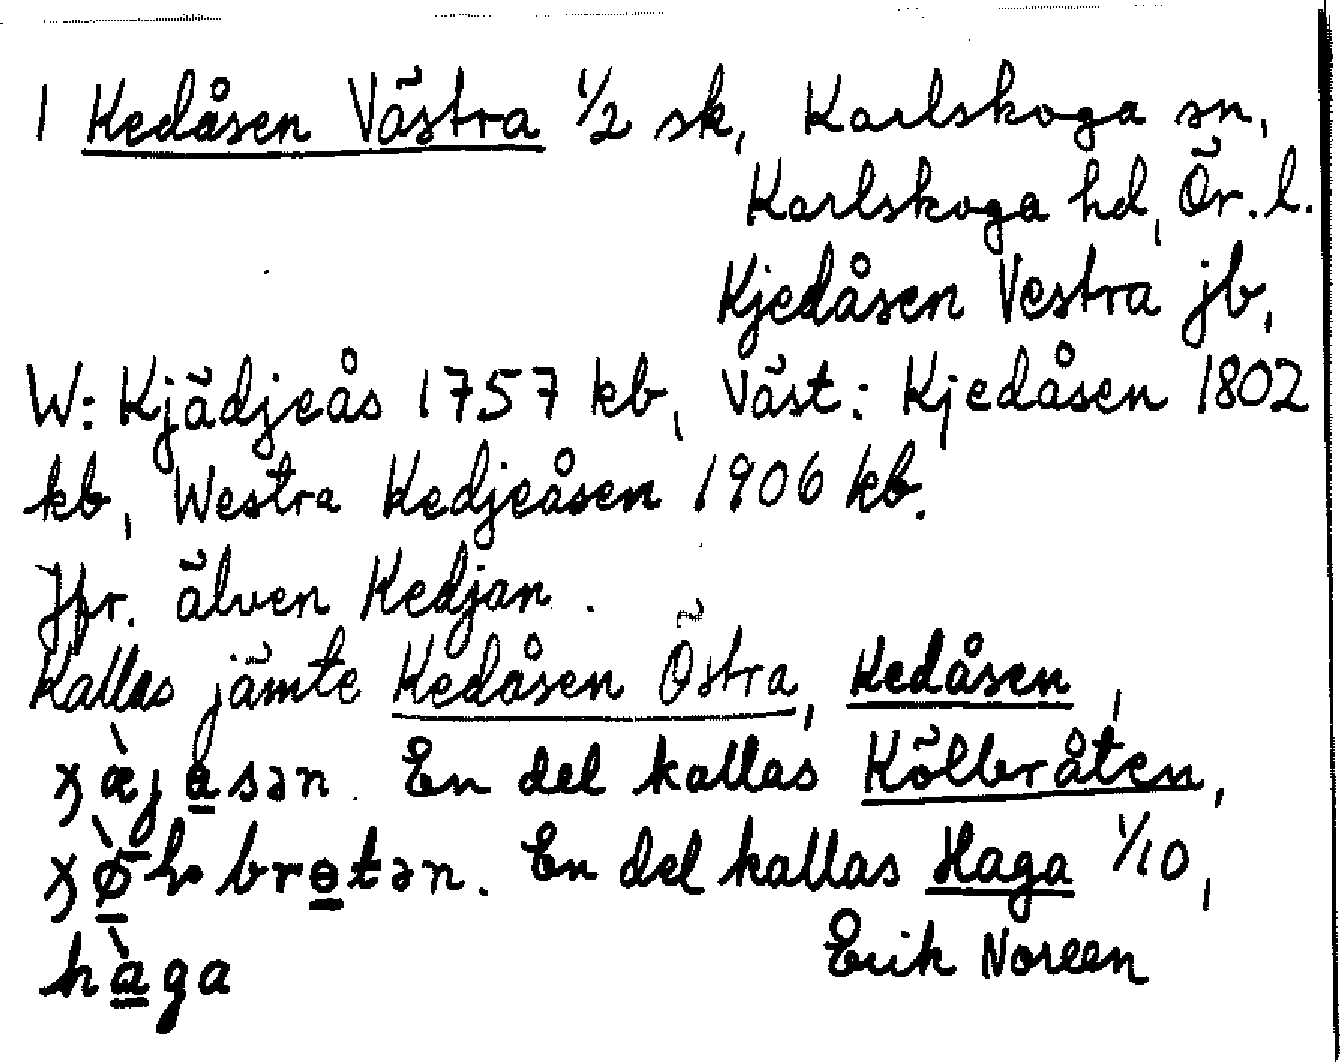 1 Kedåsen Västra 1/2 sk, Karlskoga sn,
Karlskoga hd, Ör. l.
Kjedåsen Vestra jb,
W: Kjädjeås 1757 kb, Väst: Kjedåsen 1802
kb, Westra Kedjeåsen 1906 kb.
Jfr. älven Kedjan.
Kallas jämte Kedåsen Östra, Kedåsen,
En del kallas Kölbråten,
En del kallas Haga 1/10,
hàga
Erik Noreen